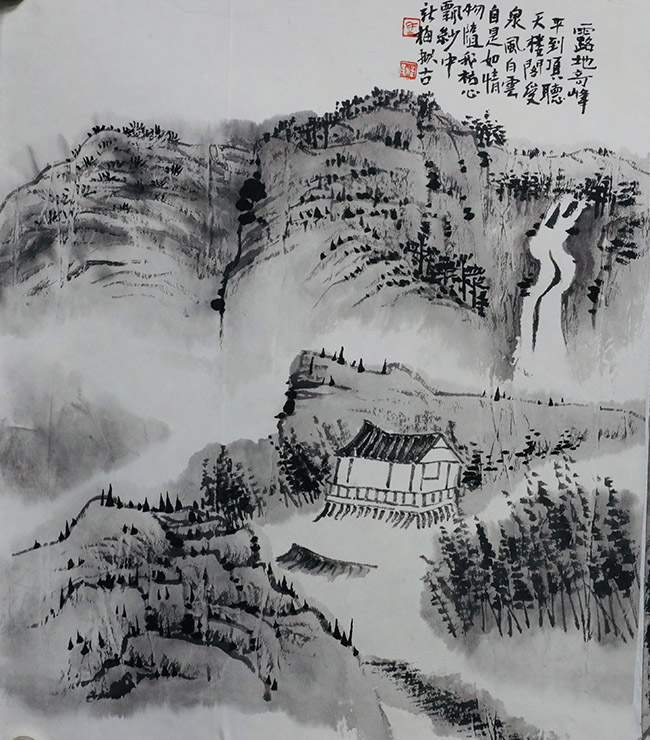 露地奇峰
平到頂聽
天樓閣受
泉風白雲
自是如情
物隨我心
飄紗中
梅拟古